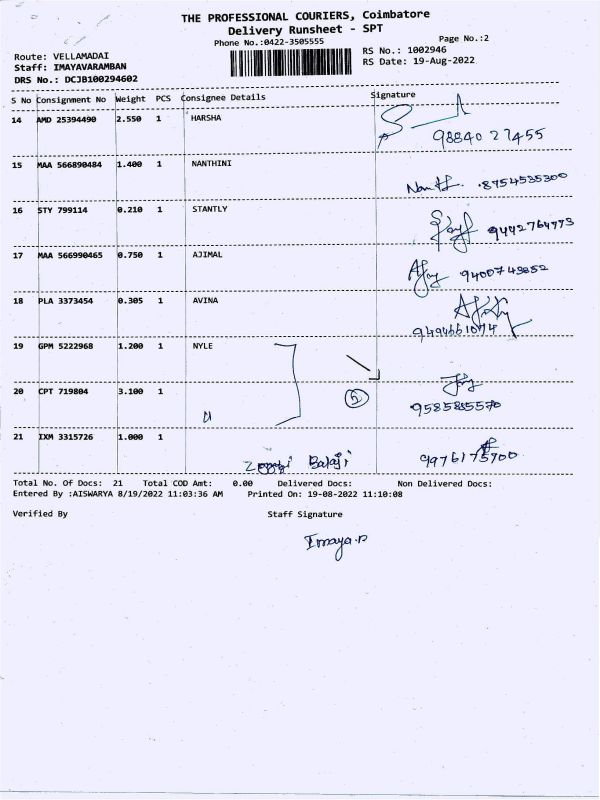 THE PROFESSIONAL COURIERS, Coimbatore
Delivery Runsheet - SPT
Phone No.:0422-3505555
Page No.:2
Route: VELLAMADAI
RS No.: 1002946
Staff: IMAYAVARAMBAN
RS Date: 19-Aug-2022
DRS No.: DCJB100294602
S No Consignment No Weight PCS Consignee Details Signature
14 AMD 25394490 2.550 1 HARSHA
98840 27455
15 MAA 566890484 1.400 1 NANTHINI
8754535300
16 STY 799114 0.210 1 STANTLY
9442764773
17 MAA 566990465 0.750 1 AJIMAL
9400743852
18 PLA 3373454 0.305 1 AVINA
9494661074
19 GPM 5222968 1.200 1 NYLE
20 CPT 719804 3.100 1
5
9585835570
21 IXM 3315726 1.000 1
Balaji 9976175700
Total No. Of Docs: 21 Total COD Amt: 0.00 Delivered Docs: Non Delivered Docs:
Entered By :AISWARYA 8/19/2022 11:03:36 AM Printed On: 19-08-2022 11:10:08
Verified By Staff Signature
Imaya.P